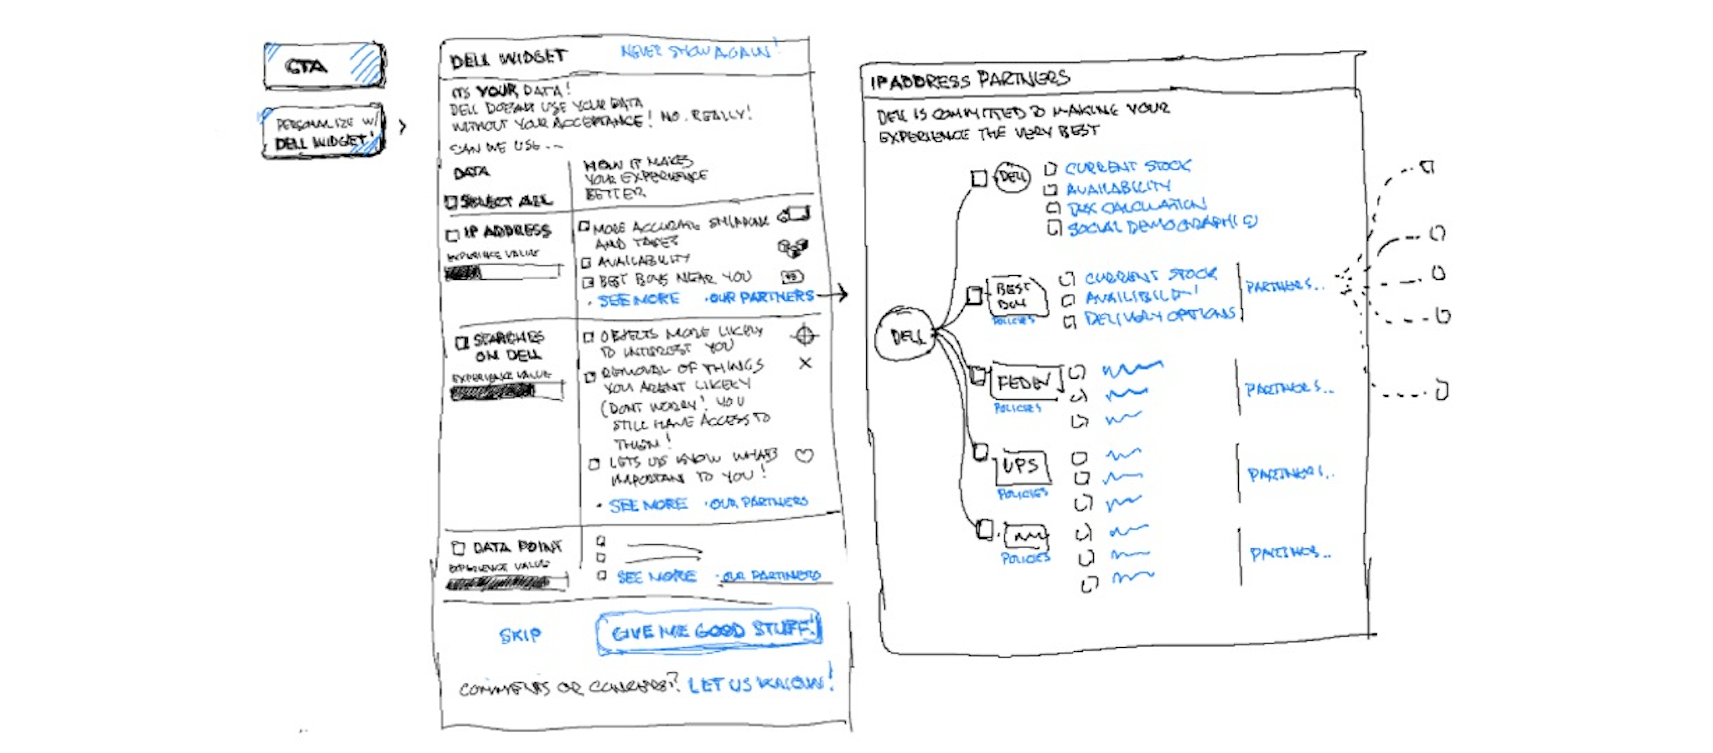 CTA
PERSONALIZE W/
DELL WIDGET!
DELL WIDGET
NEVER SHOW AGAIN!
ITS YOUR DATA!
DELL DOESNT USE YOUR DATA
WITHOUT YOUR ACCEPTANCE! NO. REALLY!
CAN WE USE...
DATA
HOW IT MAKES
YOUR EXPERIENCE
BETTER
SELECT ALL
IP ADDRESS
EXPERIENCE VALUE
MORE ACCURATE SHIPPING
AND TAXES
AVAILABILITY
BEST BUYS NEAR YOU
SEE MORE
OUR PARTNERS
SEARCHES
ON DELL
EXPERIENCE VALUE
OBJECTS MORE LIKELY
TO INTEREST YOU
REMOVAL OF THINGS
YOU ARENT LIKELY
(DONT WORRY! YOU
STILL HAVE ACCESS TO
THEM!
LETS US KNOW WHATS
IMPORTANT TO YOU!
SEE MORE
OUR PARTNERS
DATA POINT
EXPERIENCE VALUE
SEE MORE
OUR PARTNERS
SKIP
GIVE ME GOOD STUFF!
COMMENTS OR CONCERNS? LET US KNOW!
IP ADDRESS PARTNERS
DELL IS COMMITTED TO MAKING YOUR
EXPERIENCE THE VERY BEST
DELL
DELL
CURRENT STOCK
AVAILABILITY
TAX CALCULATION
SOCIAL DEMOGRAPHICS
BEST
POLICIES
CURRENT STOCK
DELIVERY OPTIONS
PARTNERS..
FEDEX
POLICIES
PARTNERS..
UPS
POLICIES
PARTNERS..
POLICIES
PARTNERS..